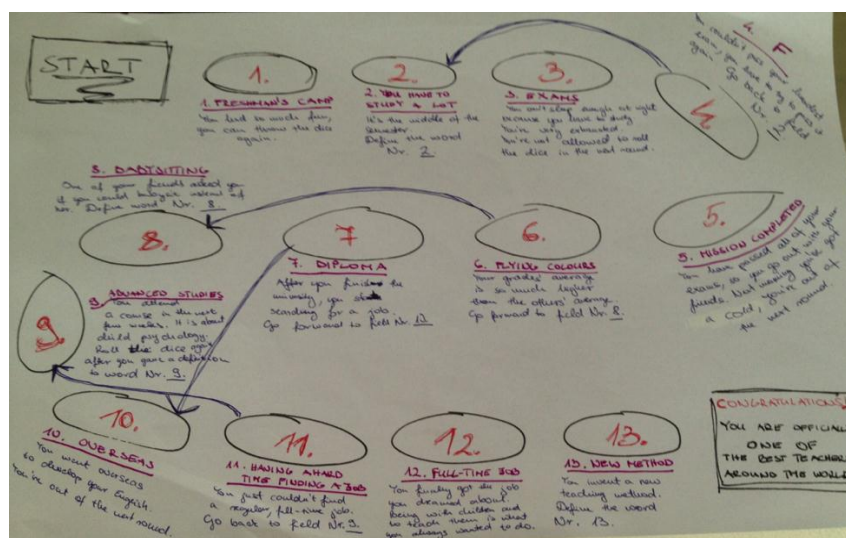 START
1.
1. FRESHMAN'S CAMP
You had so much fun,
you can throw the dice
again.
2.
2. YOU HAVE TO
STUDY A LOT
It's the middle of the
semester.
Define the word
Nr. 2
3.
3. EXAMS
You can't sleep enough at night
because you have to study
You're very exhausted.
You're not allowed to roll
the dice in the next round.
4.
4. F
You couldn't pass your hardest
exam, you have to try to pass it
again. Go back to field
Nr. 2
5.
5. MISSION COMPLETED
You have passed all of your
exams, so you go out with your
friends. But you've got
a cold, you're out of
the next round.
6.
6. FLYING COLOURS
Your grades' average
is so much higher
than the others' average.
Go forward to field Nr. 8.
7
7. DIPLOMA
After you finished the
university, you
searching for a job.
Go forward to field Nr.
8.
8. BABYSITTING
One of your friends asked you
if you would babysit instead of
her. Define word Nr. 8.
9.
9. ADVANCED STUDIES
You attend
a course in the next
few weeks. It is about
child psychology.
Roll the dice again
after you gave a definition
to word Nr. 9.
10.
10. OVERSEAS
You went overseas
to develop your English.
You're out of the next round.
11.
11. HAVING A HARD
TIME FINDING A JOB
You just couldn't find
a regular, full-time job.
Go back to field Nr. 9.
12.
12. FULL-TIME JOB
You finally got the job
you dreamed about.
Being with children and
to teach them is what
you always wanted to do.
13.
13. NEW METHOD
You invent a new
teaching method.
Define the word
Nr. 13.
CONGRATULATIONS
YOU ARE OFFICIAL
ONE OF
THE BEST TEACHER
AROUND THE WORLD